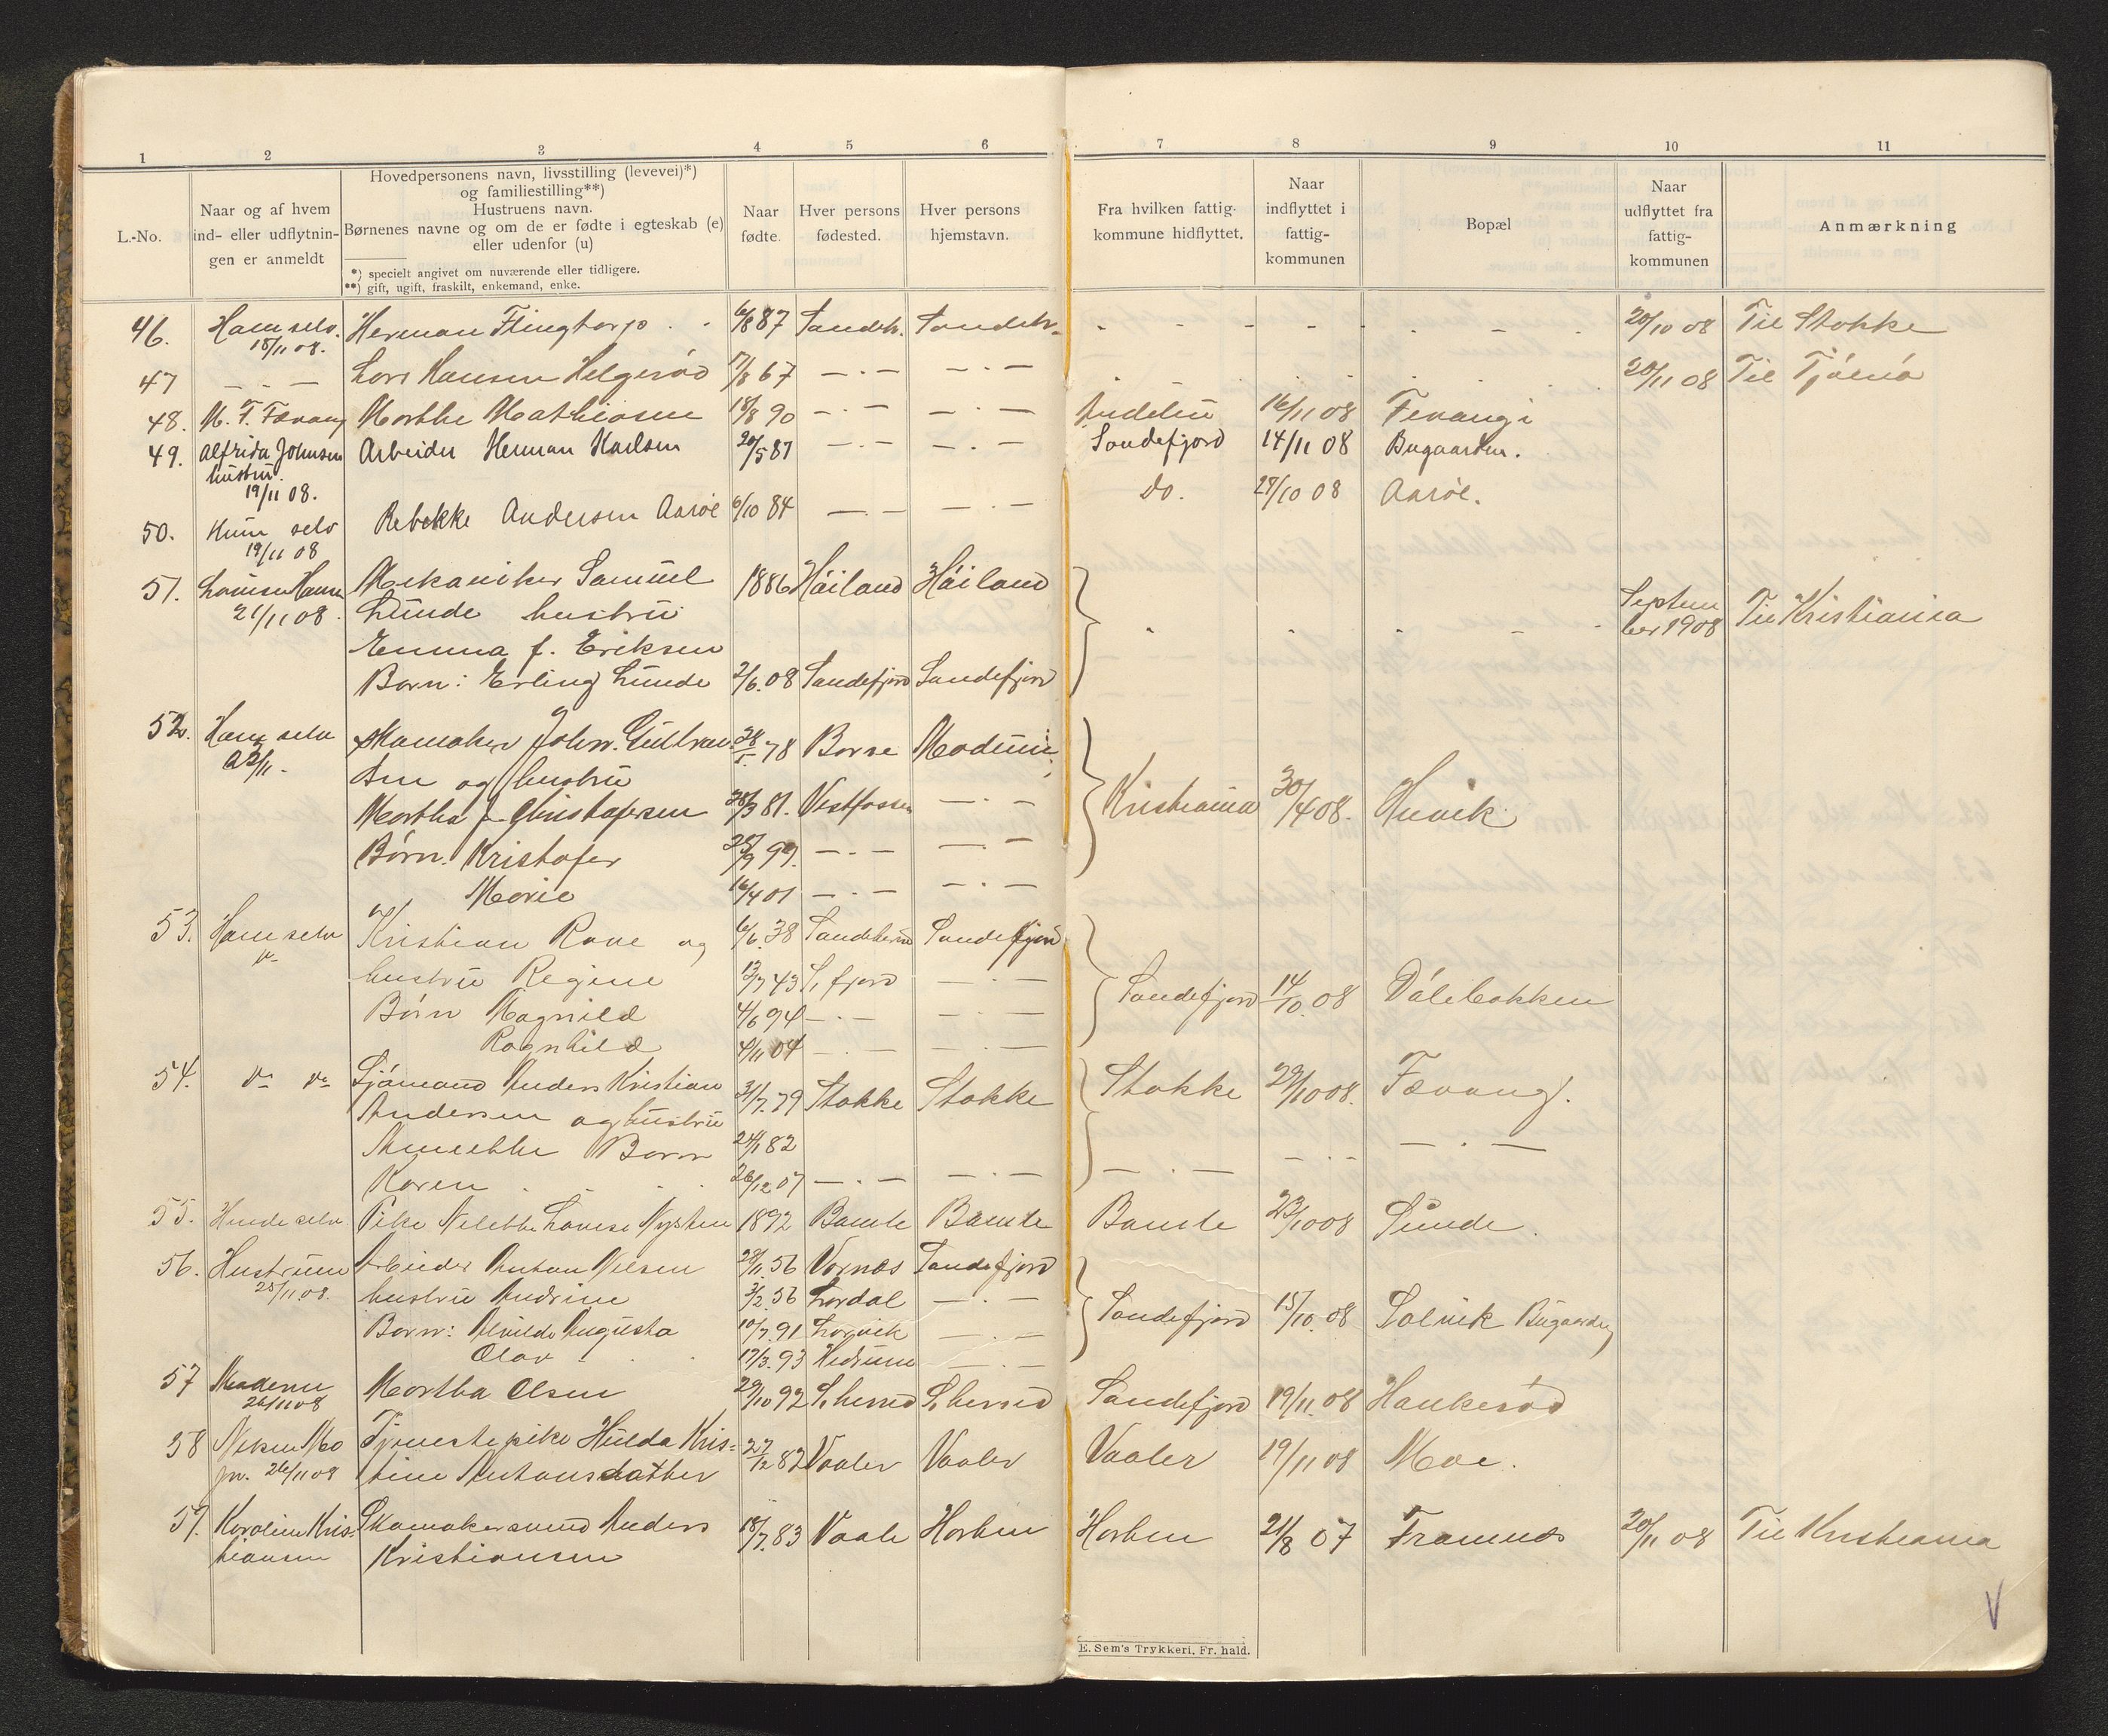 1 2 3 4 5 6 7 8 9 10 11
L.-No.
Naar og af hvem
ind- eller udflytnin-
gen er anmeldt
Hovedpersonens navn, livsstilling (levevei)*)
og familiestilling**)
Hustruens navn.
Børnenes navne og om de er fødte i egteskab (e)
eller udenfor (u)
*) specielt angivet om nuværende eller tidligere.
**) gift, ugift, fraskilt, enkemand, enke.
Naar
fødte.
Hver persons
fødested.
Hver persons
hjemstavn.
Fra hvilken fattig-
kommune hidflyttet.
Naar
indflyttet i
fattig-
kommunen
Bopæl
Naar
udflyttet fra
fattig-
kommunen
Anmærkning
46. Ham selv. Herman Flingtorp 6/8 87 Sandeh. Sandeh. 20/10 08 Til Stokke
18/11 08.
47 Lars Hansen Helgerød 17/8 67 — · — — · — 20/11 08 Til Tjømø
48. M. F. Fævang Marthe Mathiasen 18/8 90 — · — — · — 16/11 08 Fevang
49. Alfrida Johnsen Arbeider Herman Karlsen 20/5 87 — · — — · — Sandefjord 14/11 08 Bugaarden.
hustru.
19/11 08.
50. Hun selv Rebekke Andersen Aarøe 6/10 84 — · — — · — Do. 28/10 08 Aarøe.
19/11 08
51. Louise Hansen Mekaniker Samuel 1886 Høiland Høiland
21/11 08. Lunde hustru September 1908 Til Kristiania
Emma f. Eriksen
Barn: Erling Lunde 2/6. 08 Sandefjord Sandefjord
52. Ham selv Skomaker John. Gulbran- 28/1. 78 Borre Modum
23/11. sen og hustru
Martha f. Christofersen 28/3 81. Vestfossen — · — Kristiania 30/4 08. Huvik
Børn. Kristofer 28/9 99. — · — — · —
Marie 16/4 01 — · — — · —
53. Ham selv Kristian Rove og 6/6. 38 Sandeherred Sandefjord
hustru Regine 13/7 43 S. fjord — · — Sandefjord 14/10. 08 Dølebakken
Børn Magnild 4/6 94 — · — — · —
Ragnhild 4/11 04 — · — — · —
54. do do Sjømand Anders Kristian 31/7. 79 Stokke Stokke Stokke 29/10 08. Fævang.
Andersen og hustru
Annette Barn 24/1 82
Karen 26/12 07 — · — — · — — · — — · — — · —
55. Hende selv Pike Nilette Lovise Nysten 1892 Bamle Bamle Bamle 23/10 08 Sunde.
56. Hustruen Arbeider Anton Nilsen 28/11. 56 Varnes Sandefjord
25/11 08. hustru Andrine 3/2. 56 Lardal — · — Sandefjord 15/10. 08 Solvik Bugaarden
Barn: Alvilde Augusta 10/7. 91 Larvik — · —
Olav 17/3. 93 Hedrum — · —
57 Moderen Martha Olsen 29/10 92 S. herred S. herred Sandefjord 19/11. 08 Haukerød
26/11 08
58 Nilsen Mo Tjenestepike Hulda Kris- 27/2 82 Vaaler Vaaler Vaaler 19/11 08 Moe.
26/11 08 tine Antonsdatter
59. Karoline Kris- Skomakersvend Anders 18/7. 83 Vaale Horten Horten 21/8 07 Framnæs 20/11 08 Til Kristiania
tiansen Kristiansen
E. Sem's Trykkeri, Fr. hald.
V